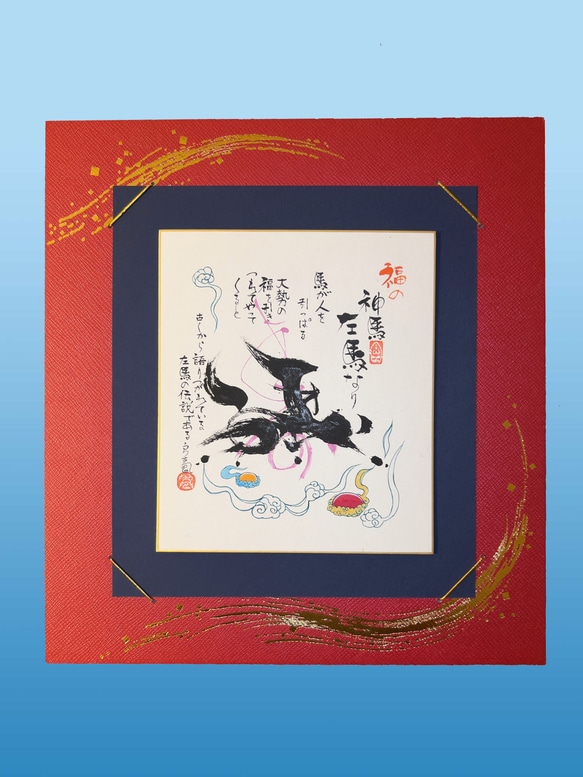 福の
神馬
左馬なり
馬が人を
引っぱる
大勢の
福を引き
つれてやって
くると
古くから語りつがれている
左馬の伝説である